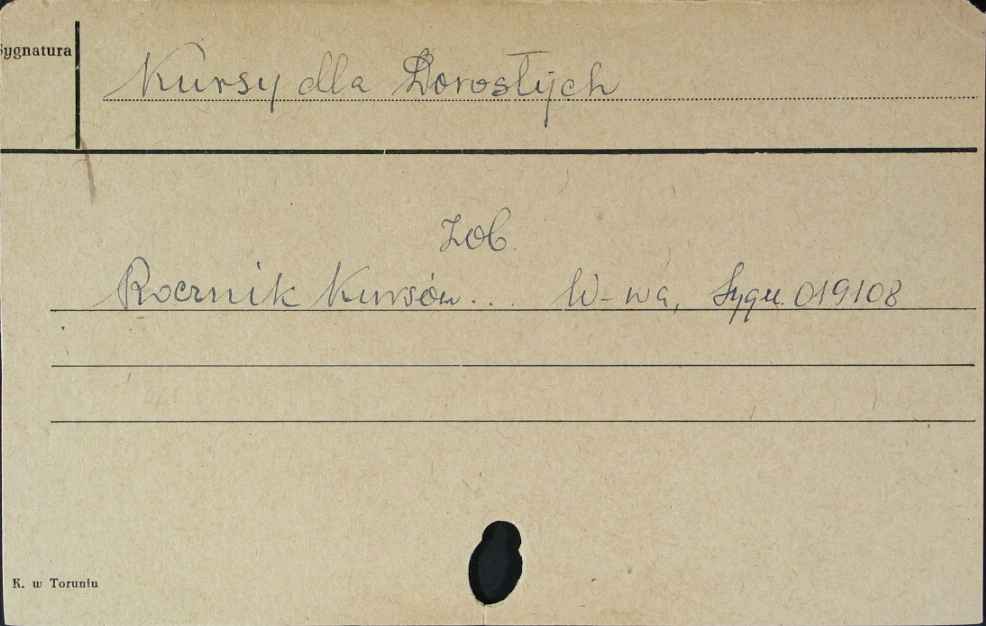 Sygnatura
Kursy dla Dorosłych
Zob
Rocznik Kursów... W-wa, Sygn. 019108
K. w Toruniu